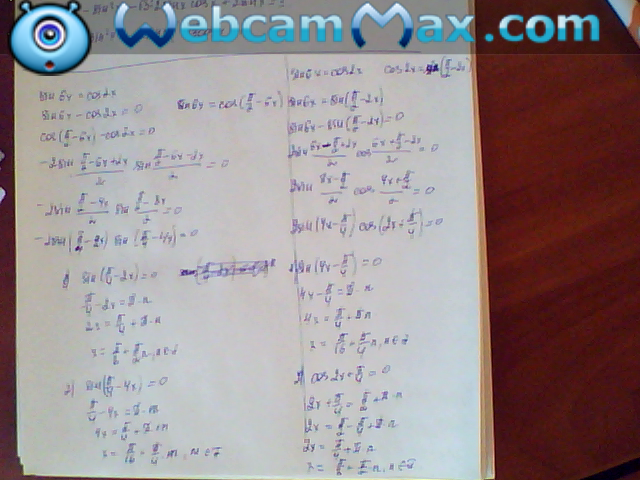 WebcamMax.com
sin 6x = cos 2x
sin 6x - cos 2x = 0
sin 6x = cos(π/2 - 6x)
cos(π/2 - 6x) - cos 2x = 0
-2 sin (π/2 - 6x + 2x)/2 sin (π/2 - 6x - 2x)/2 = 0
-2 sin (π/2 - 4x)/2 sin (π/2 - 8x)/2 = 0
-2 sin(π/4 - 2x) sin(π/4 - 4x) = 0
1) sin(π/4 - 2x) = 0
π/4 - 2x = π·n
2x = π/4 + π·n
x = π/8 + π/2 n, n∈Z
2) sin(π/4 - 4x) = 0
π/4 - 4x = π·m
4x = π/4 + π·m
x = π/16 + π/4·m, m∈Z
sin 6x = cos 2x cos 2x = sin(π/2 - 2x)
sin 6x = sin(π/2 - 2x)
sin 6x - sin(π/2 - 2x) = 0
2 sin (6x - π/2 + 2x)/2 cos (6x + π/2 - 2x)/2 = 0
2 sin (8x - π/2)/2 cos (4x + π/2)/2 = 0
2 sin(4x - π/4) cos(2x + π/4) = 0
sin(4x - π/4) = 0
4x - π/4 = π·n
4x = π/4 + π·n
x = π/16 + π/4 n, n∈Z
2) cos 2x + π/4 = 0
2x + π/4 = π/2 + π·n
2x = π/2 - π/4 + π·n
2x = π/4 + π·n
x = π/8 + π/2·n, n∈Z